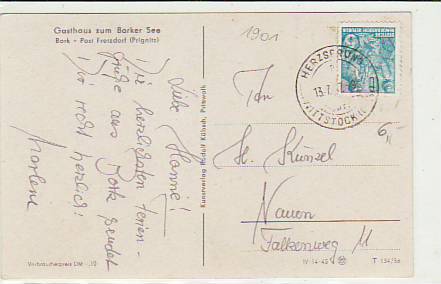 Gasthaus zum Borker See
Bork - Post Fretzdorf (Prignitz)
Liebe Hanne!
Die herzlichsten Ferien-
grüße aus Bork sendet
Dir recht herzlich!
Marlene
Verbraucherpreis DM -,20
Kunstverlag Rudolf Kübsch, Pritzwalk
1901
HERZSPRUNG
13.7.
WITTSTOCK
6,-
H. Künzel
Nauen
Falkenweg 11
IV-14-45
T 154/56